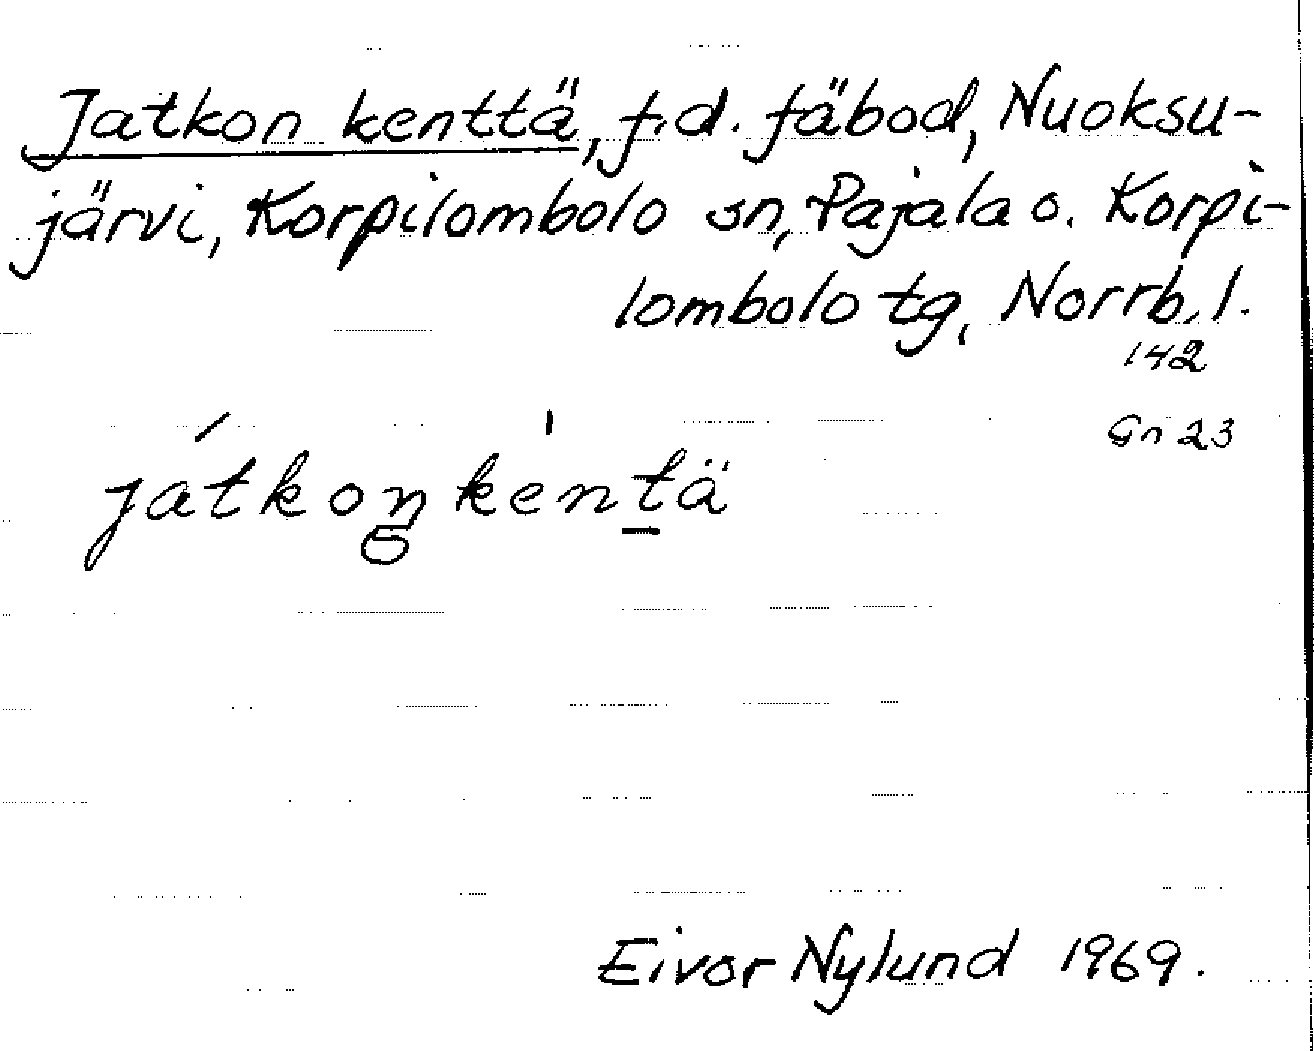 Jatkon kenttä, f.d. fäbod, Nuoksu-
järvi, Korpilombolo sn, Pajala o. Korpi-
lombolo tg, Norrb. l.
142
Gn 23
játkoŋkentä
Eivor Nylund 1969.